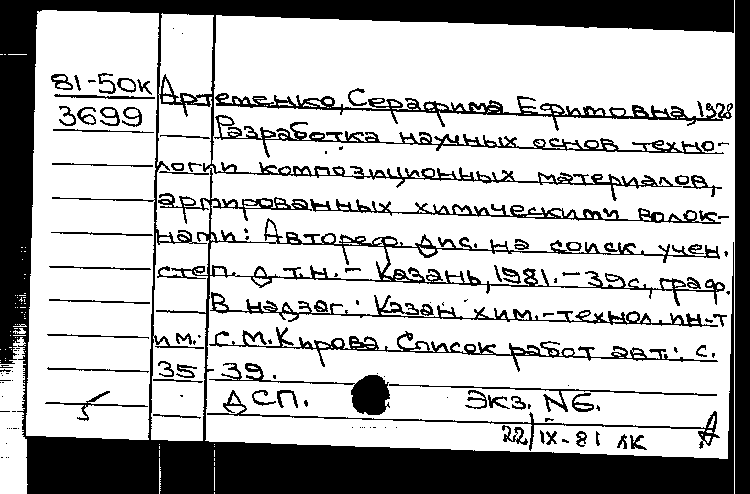 81-50к Артеменко, Серафима Ефимовна, 1928
3699 Разработка научных основ техно-
логии композиционных материалов,
армированных химическими волок-
нами: Автореф. Дис. на соиск. учен.
степ. д. т.н. - Казань, 1981. - 39с., граф.
В надзаг.: Казан. хим.-технол. ин-т
им. С.М.Кирова. Список работ авт.: с.
35-39.
ДСП. Экз. №6.
22/IX-81 ЛК